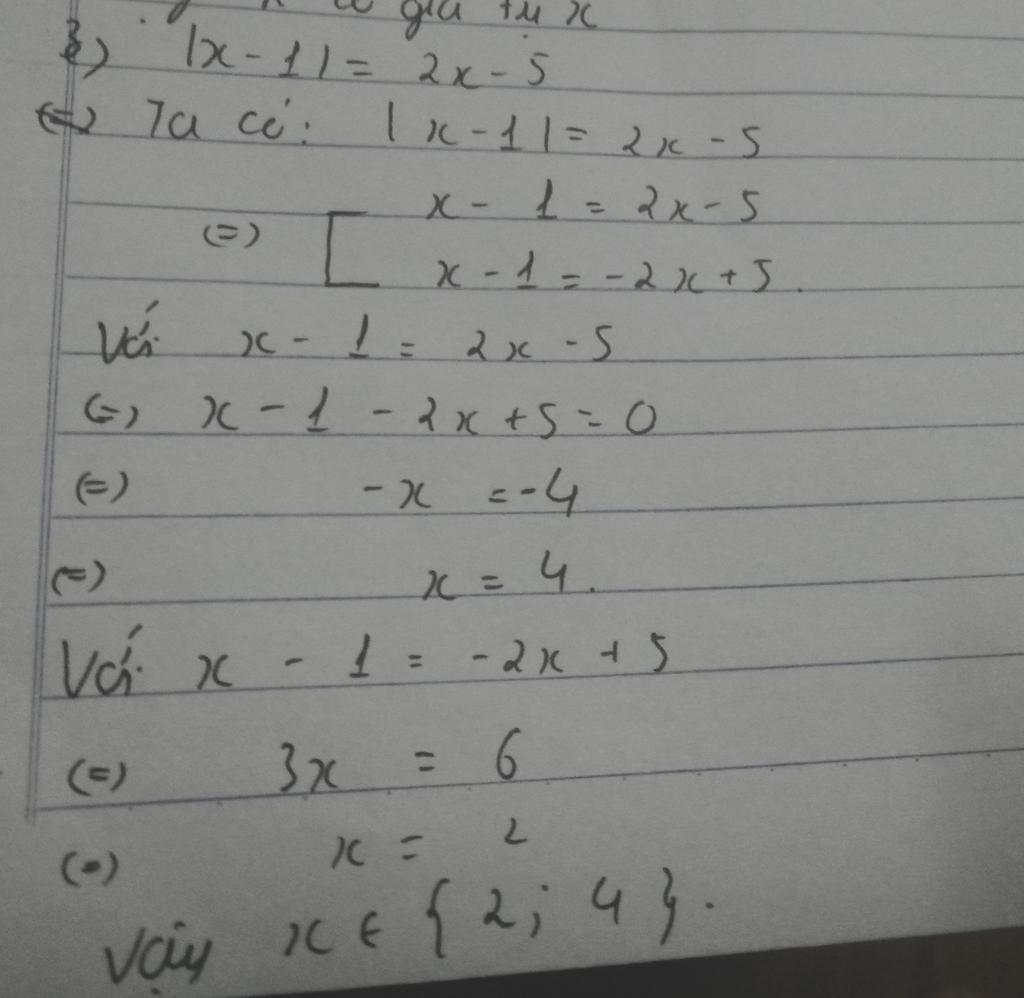 giá trị x
3) |x - 1| = 2x - 5
(=) Ta có: |x - 1| = 2x - 5
x - 1 = 2x - 5
(=) [
x - 1 = -2x + 5.
Với x - 1 = 2x - 5
(=) x - 1 - 2x + 5 = 0
(=) -x = -4
(=) x = 4.
Với x - 1 = -2x + 5
(=) 3x = 6
(=) x = 2
Vậy x ∈ {2; 4}.